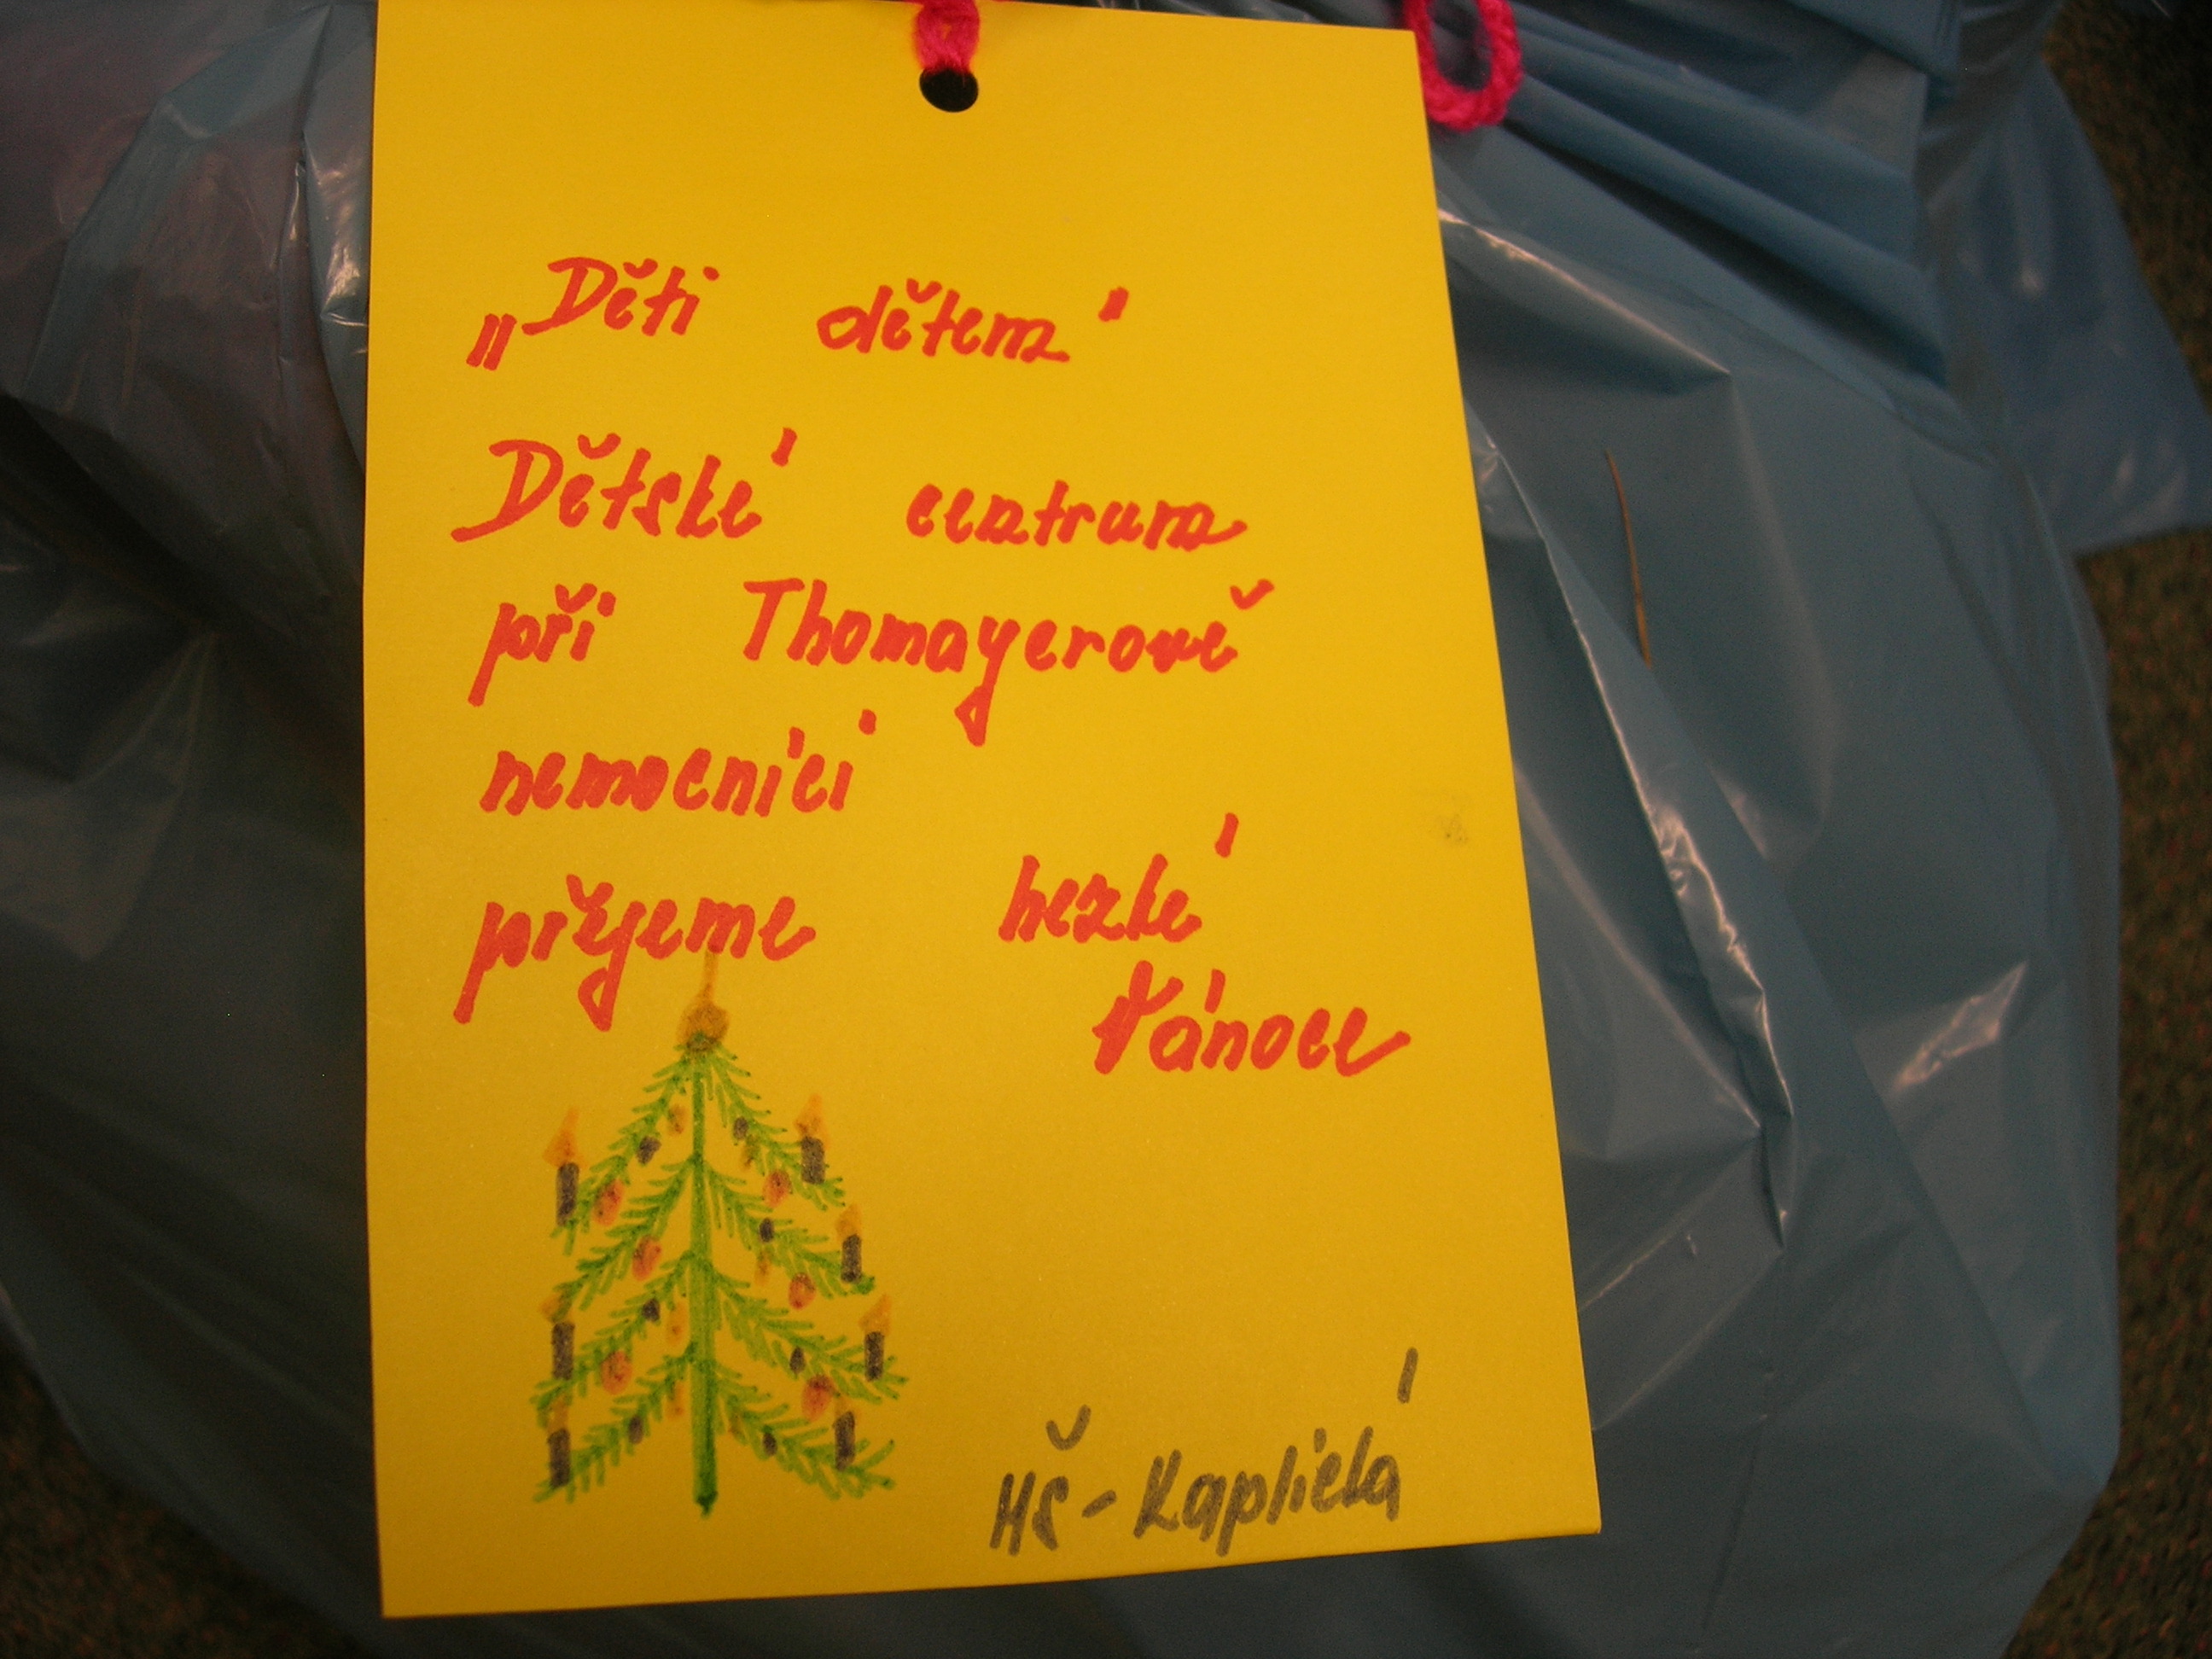 „Děti dětem"
Dětské centrum
při Thomayerově
nemocnici
přejeme hezké
Vánoce
MŠ - Kaplická